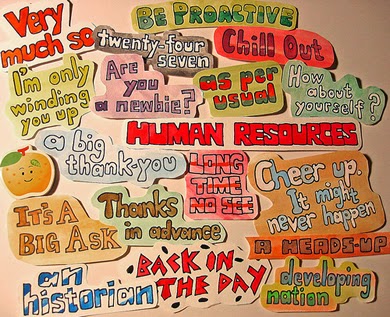 Very
much so
BE PROACTIVE
twenty-four
seven
Chill Out
I'm only
winding
you up
Are
you
a newbie?
as per
usual
How
about
yourself?
HUMAN RESOURCES
a big
thank-you
LONG
TIME
NO SEE
Cheer up.
It might
never happen
IT'S A
BIG ASK
Thanks
in advance
A HEADS-UP
an
historian
BACK IN
THE DAY
developing
nation